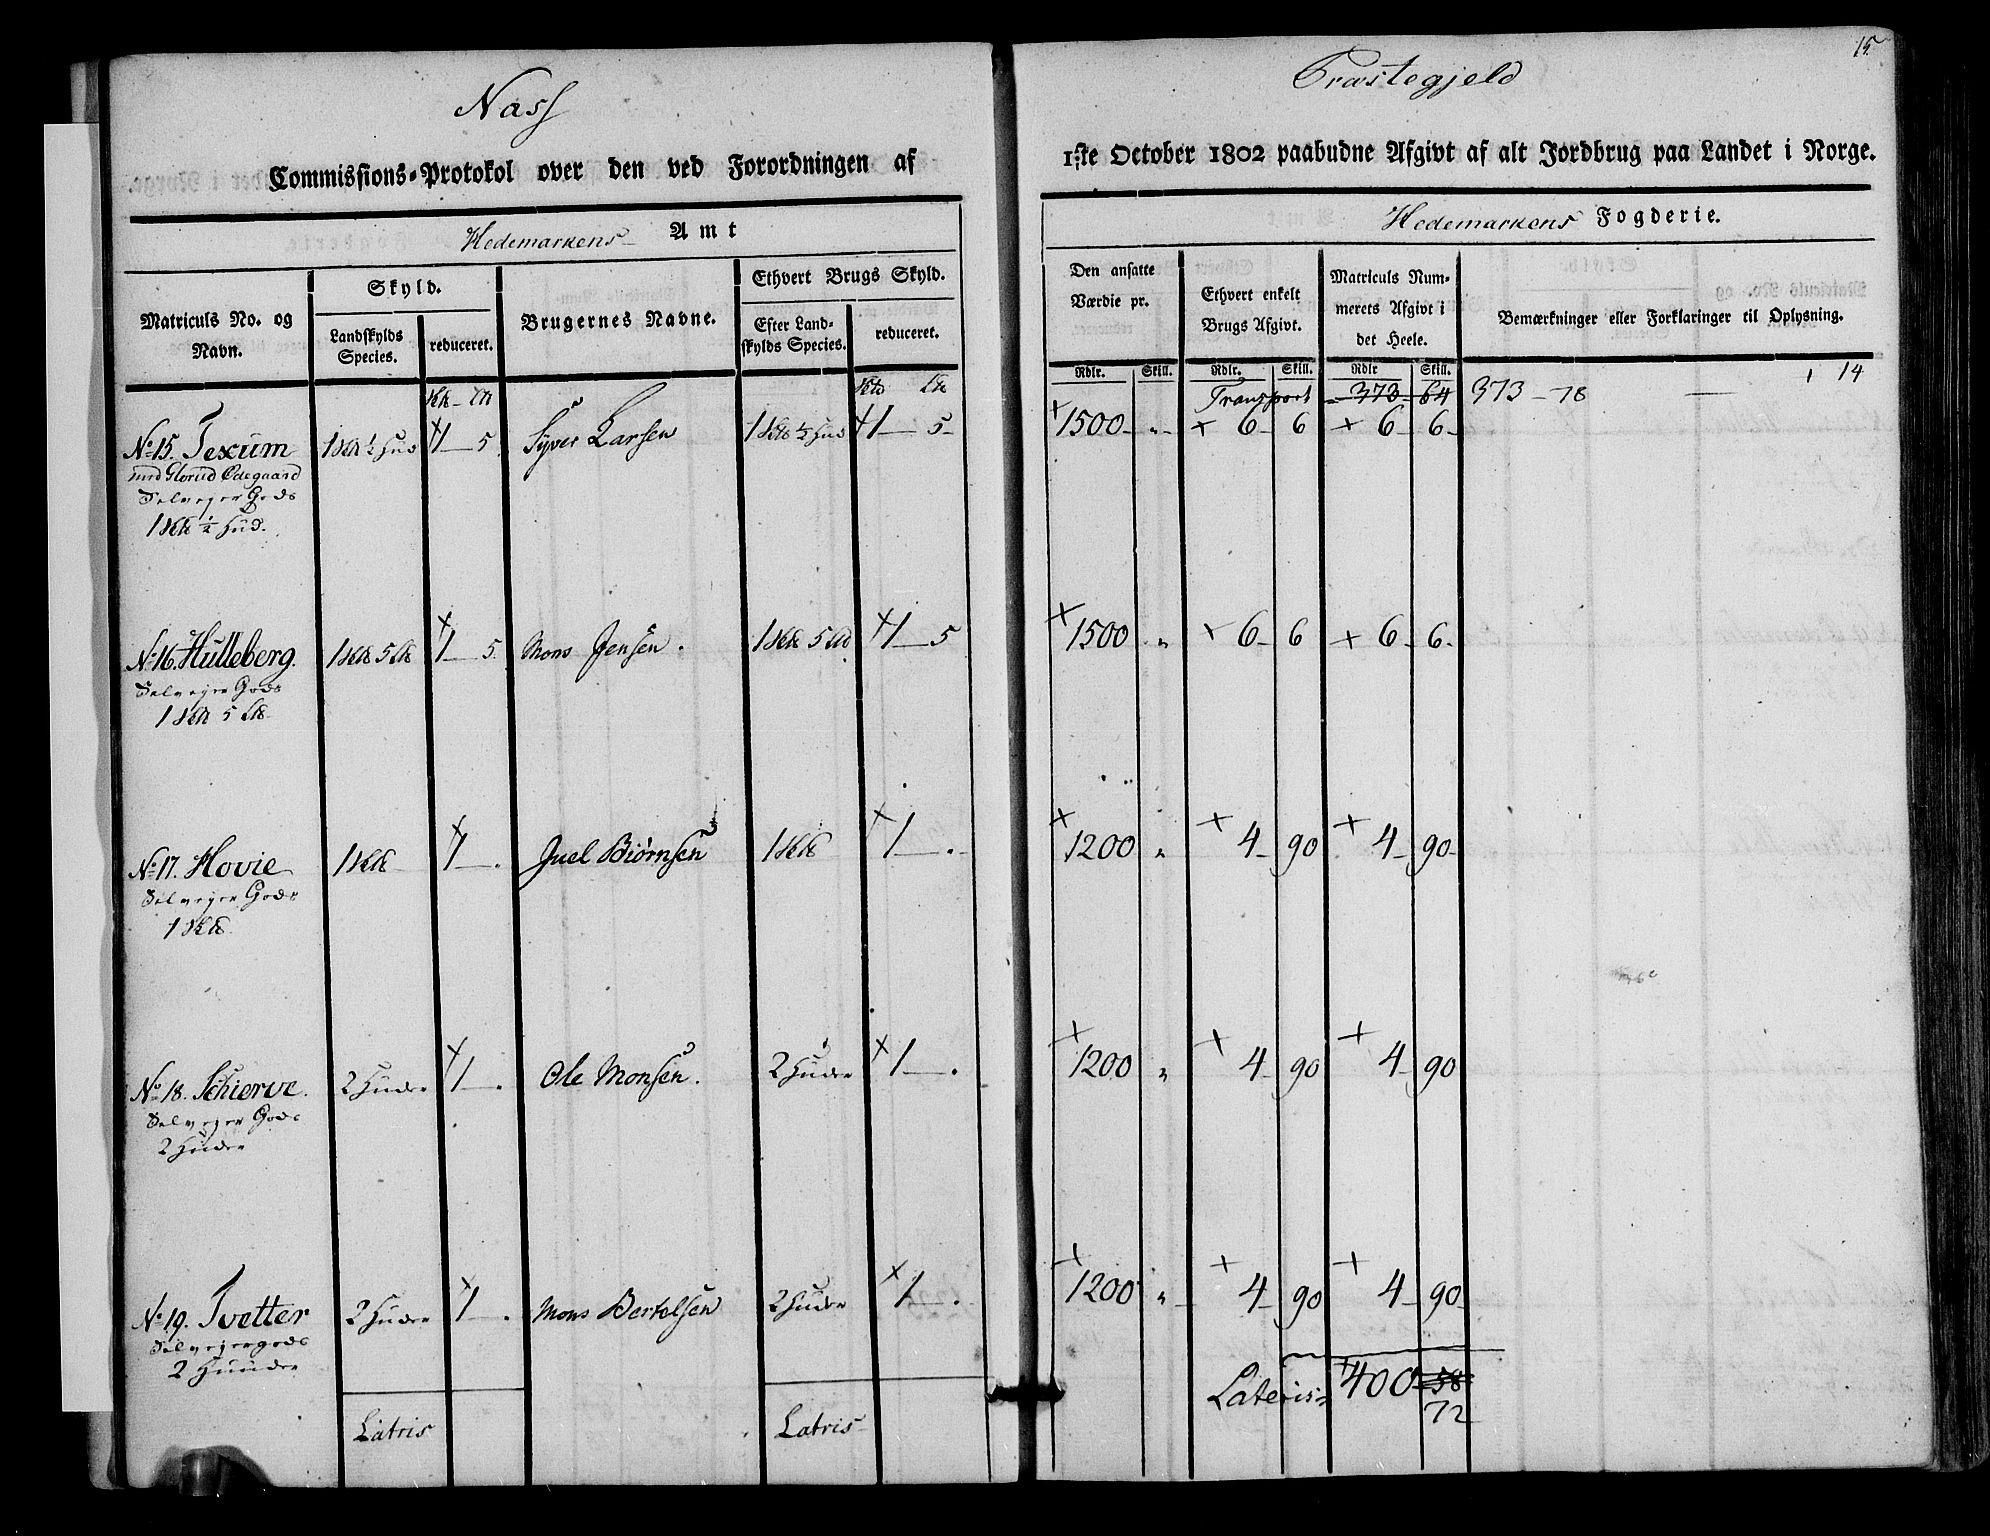 15.
Næss Præstegjeld
Commissions-Protokol over den ved Forordningen af 1:ste October 1802 paabudne Afgivt af alt Jordbrug paa Landet i Norge.
Hedemarkens Amt
Hedemarkens Fogderie.
Matriculs No. og Navn.
Skyld.
Landskylds Species.
reduceret.
Brugernes Navne.
Ethvert Brugs Skyld.
Efter Landskylds Species.
reduceret.
Den ansatte Værdie pr.
Ethvert enkelt Brugs Afgivt.
Matriculs Nummerets Afgivt i det Heele.
Bemærkninger eller Forklaringer til Oplysning.
Rdlr. Skill. Rdlr. Skill. Rdlr Skill.
14
Transport 373 64 373 - 78
No 15. Texum 1 ½ Hud 1 - 5 Syver Larsen 1 ½ Hud 1 - 5 1500 - " 6 6 6 6
med Glorud Ødegaard
Selveyer Gods
1 ½ Hud.
No 16. Hulleberg. 1 5 1 - 5 Mons Jensen. 1 5 1 - 5 1500 " 6 - 6 6 - 6
Selveyer Gods
1 5
No 17. Hovie 1 1 - . Juel Biørnsen 1 1 - . 1200 " 4 - 90 4 - 90
Selveyer Gods
1
No 18. Schierve. 2 Huder 1 - . Ole Monsen. 2 Huder 1 - . 1200 " 4 - 90 4 - 90
Selveyer Gods
2 Huder
No 19. Tvetter 2 Huder 1 - . Mons Bertelsen 2 Huder 1 - . 1200 " 4 - 90 4 - 90
Selveyergods
2 Huuder
Latris Latris Lateris 400 - 58
72